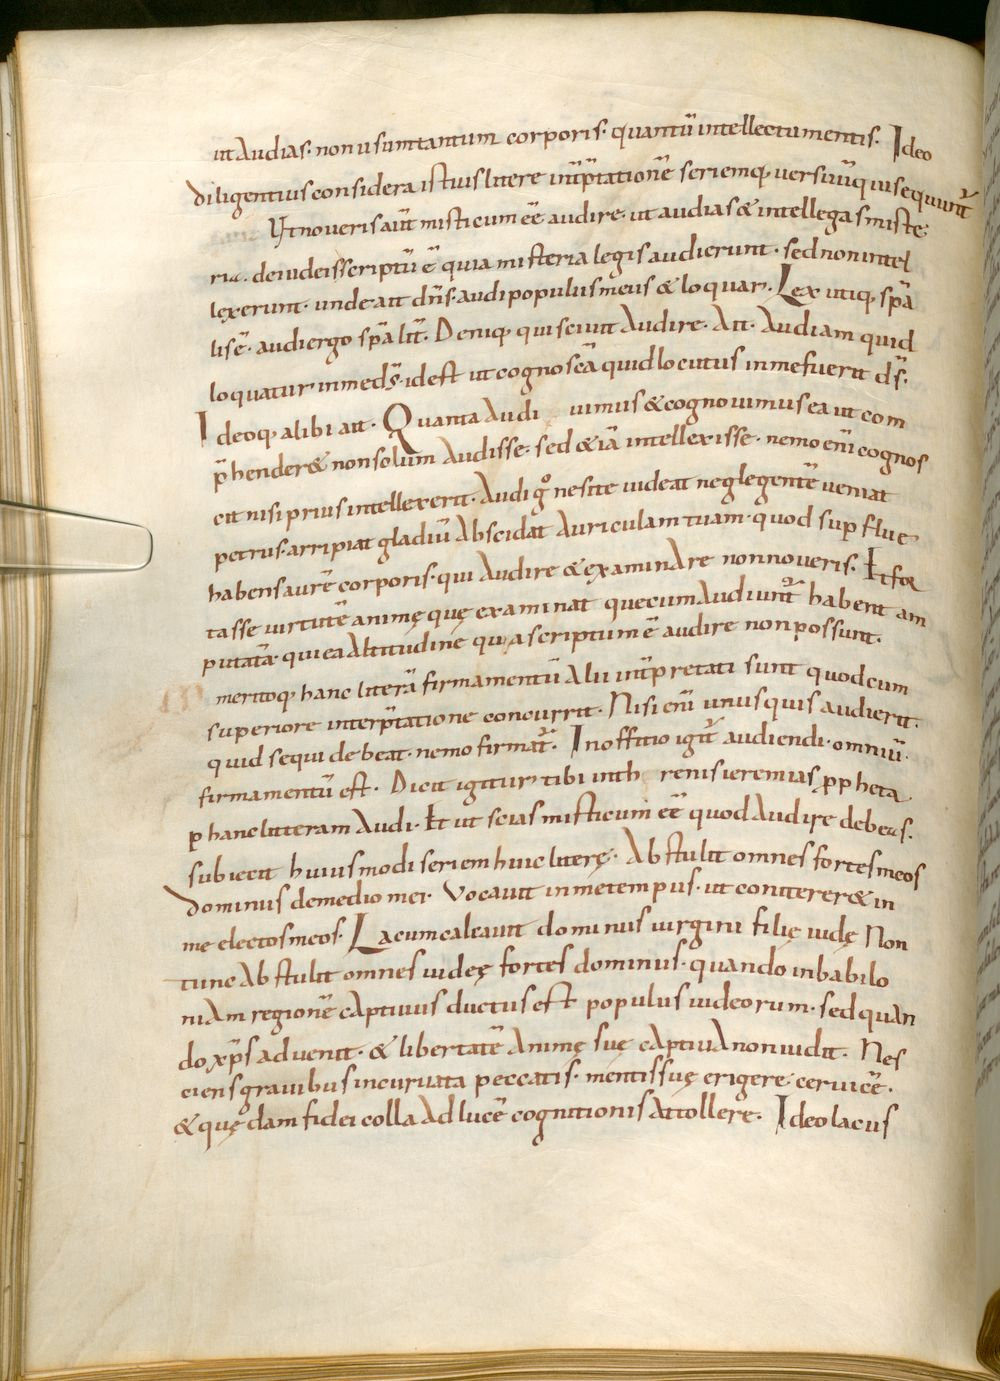 ut audias· non usum tantum corporis· quantū intellectu mentis. Ideo
diligentius considera istius litere int̄p̄tationē seriemq; versuūqui sequunt̄
Ut noveris aut̄ misticum eē audire· ut audias & intellegas miste
ria. de iudeis scriptū ē quia misteria legis audierunt· sed non intel
lexerunt· unde ait dn̄s· audi populus meus & loquar. Lex utiq; sp̄a
lis ē· audi ergo sp̄alit̄. Deniq; qui sciunt Audire· Ait· Audiam quid
loquatur in me dn̄s· id est ut cognoscā quid locutus in me fuerit dn̄s·
Ideoq; alibi ait· Quanta Audi uimus & cognouimus ea ut com
p̄hender& non solum Audisse· sed & iā intellexisse· nemo eni cognos
cit nisi prius intellexerit· Audi g° ne scite uideat neglegentē veniat
petrus· arripiat gladiū Abscidat Auriculam tuam· quod sup flue
habens aurē corporis· qui Audire & examinAre non noveris. Et for
tasse virtutē animę quę examinat que cum Audiunt̄ habent am
putatā· qui ea Altitudine quia scriptum ē audire non possunt.
meritoq; hanc literā firmamentū Alii int̄pretati sunt quod cum
superiore interp̄tatione concurrit. Nisi eni unusquis audierit·
quid sequi debeat· nemo firmat̄. In offitio igit̄ audiendi· omniū
firmamentū est. Dicit igitur tibi in th renis ieremias pp heta
p hanc litteram Audi· Et ut scias misticum eē quod Audire debeas·
subiecit huiusmodi seriem huic literę· Abstulit omnes fortes meos
dominus de medio mei· Vocauit in me tempus· ut conterer& in
me electos meos. Lacum calcauit dominus uirgini filię iudę Non
tunc Abstulit omnes iudeę fortes dominus· quando in babilo
niAm regionē cAptivus ductus est populus iudeorum· sed quan
do xp̄s advenit· & libertatē Animę suę cAptiuA non uidit. Nes
ciens gravibus incuruata peccatis· mentis suę erigere ceruicē·
& quędam fidei colla Ad lucē cognitionis Attollere. Ideo lacus